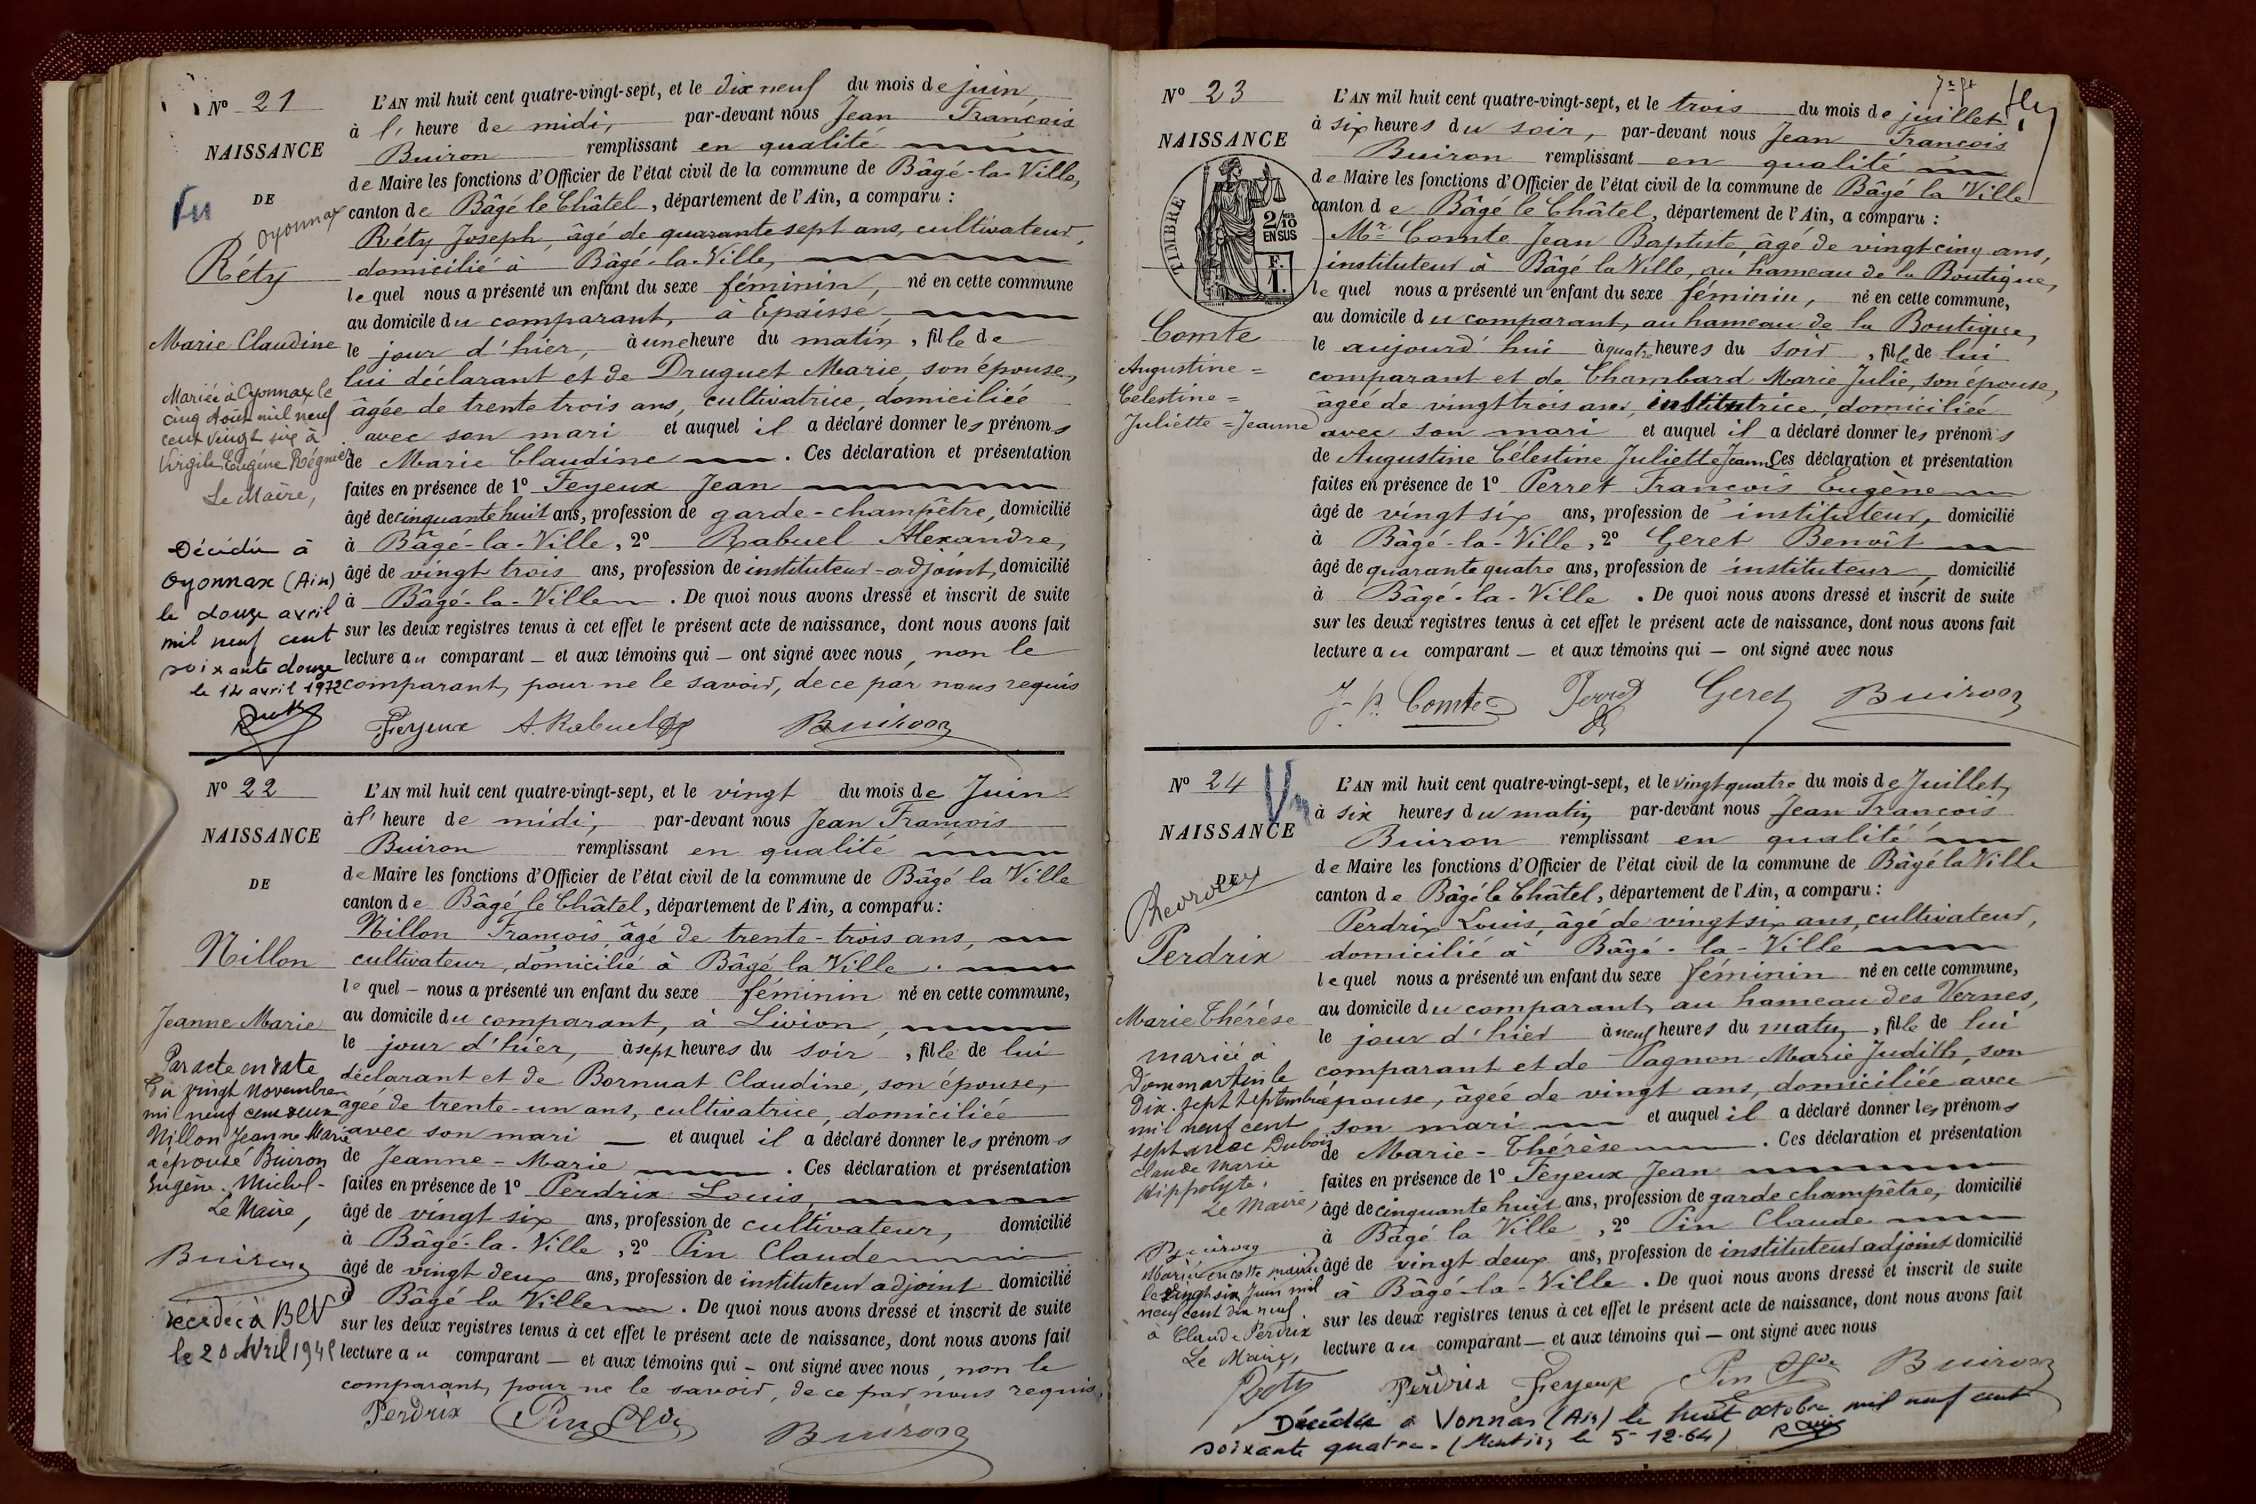 Nº 21
NAISSANCE
DE
Oyonnax
Réty
Marie Claudine
Mariée à Oyonnax le
cinq Août mil neuf
cent vingt six à
Virgile Eugène Régnier
Le Maire,
Décédée à
Oyonnax (Ain)
le douze avril
mil neuf cent
soixante douze
le 14 avril 1972
L'AN mil huit cent quatre-vingt-sept, et le dix neuf du mois de juin,
à l' heure de midi, par-devant nous Jean François
Buiron remplissant en qualité
de Maire les fonctions d'Officier de l'état civil de la commune de Bâgé-la-Ville,
canton de Bâgé le Châtel, département de l'Ain, a comparu :
Réty Joseph, âgé de quarante sept ans, cultivateur,
domicilié à Bâgé-la-Ville,
lequel nous a présenté un enfant du sexe féminin, né en cette commune
au domicile du comparant, à Epaisse,
le jour d'hier, à une heure du matin, fille de
lui déclarant et de Druguet Marie, son épouse,
âgée de trente trois ans, cultivatrice, domiciliée
avec son mari et auquel il a déclaré donner les prénoms
de Marie Claudine. Ces déclaration et présentation
faites en présence de 1º Feyeux Jean
âgé de cinquante huit ans, profession de garde-champêtre, domicilié
à Bâgé-la-Ville, 2º Rabuel Alexandre,
âgé de vingt trois ans, profession de instituteur-adjoint, domicilié
à Bâgé-la-Ville. De quoi nous avons dressé et inscrit de suite
sur les deux registres tenus à cet effet le présent acte de naissance, dont nous avons fait
lecture au comparant — et aux témoins qui — ont signé avec nous, non le
comparant, pour ne le savoir, de ce par nous requis
Feyeux A. Rabuel Buiron
Nº 22
NAISSANCE
DE
Nillon
Jeanne Marie
Par acte en date
du vingt Novembre
mil neuf cent deux
Nillon Jeanne Marie
a épousé Buiron
Eugène-Michel-
Le Maire,
Buiron
décédée à BLV
le 20 Avril 194
L'AN mil huit cent quatre-vingt-sept, et le vingt du mois de Juin
à l' heure de midi, par-devant nous Jean François
Buiron remplissant en qualité
de Maire les fonctions d'Officier de l'état civil de la commune de Bâgé la Ville
canton de Bâgé le Châtel, département de l'Ain, a comparu :
Nillon François, âgé de trente-trois ans,
cultivateur, domicilié à Bâgé la Ville.
lequel — nous a présenté un enfant du sexe féminin né en cette commune,
au domicile du comparant, à Livion,
le jour d'hier, à sept heures du soir, fille de lui
déclarant et de Bornuat Claudine, son épouse,
âgée de trente-un ans, cultivatrice, domiciliée
avec son mari — et auquel il a déclaré donner les prénoms
de Jeanne-Marie. Ces déclaration et présentation
faites en présence de 1º Perdrix Louis,
âgé de vingt six ans, profession de cultivateur, domicilié
à Bâgé-la-Ville, 2º Pin Claude
âgé de vingt deux ans, profession de instituteur adjoint domicilié
à Bâgé la Ville. De quoi nous avons dressé et inscrit de suite
sur les deux registres tenus à cet effet le présent acte de naissance, dont nous avons fait
lecture au comparant — et aux témoins qui — ont signé avec nous, non le
comparant, pour ne le savoir, de ce par nous requis.
Perdrix Pin Cde Buiron
Nº 23
NAISSANCE
TIMBRE
2/10
EN SUS
F.
1.
Comte
Augustine =
Célestine =
Juliette = Jeanne
L'AN mil huit cent quatre-vingt-sept, et le trois du mois de juillet,
à six heures du soir, par-devant nous Jean François
Buiron remplissant en qualité
de Maire les fonctions d'Officier de l'état civil de la commune de Bâgé la Ville
canton de Bâgé le Châtel, département de l'Ain, a comparu :
Mr Comte Jean Baptiste, âgé de vingt-cinq ans,
instituteur à Bâgé la Ville, au hameau de la Boutique,
lequel nous a présenté un enfant du sexe féminin, né en cette commune,
au domicile du comparant, au hameau de la Boutique,
le aujourd'hui à quatre heures du soir, fille de lui
comparant et de Chambard Marie Julie, son épouse,
âgée de vingt trois ans, institutrice, domiciliée
avec son mari et auquel il a déclaré donner les prénoms
de Augustine Célestine Juliette Jeanne. Ces déclaration et présentation
faites en présence de 1º Perret François Eugène
âgé de vingt six ans, profession de instituteur, domicilié
à Bâgé-la-Ville, 2º Geret Benoît
âgé de quarante quatre ans, profession de instituteur, domicilié
à Bâgé-la-Ville. De quoi nous avons dressé et inscrit de suite
sur les deux registres tenus à cet effet le présent acte de naissance, dont nous avons fait
lecture au comparant — et aux témoins qui — ont signé avec nous
J. B. Comte Perret Geret Buiron
Nº 24
NAISSANCE
DE
Perdrix
Marie Thérèse
mariée à
Dommartin le
Dix-sept septembre
mil neuf cent
sept avec Dubois
Claude Marie
Hippolyte.
Le Maire,
Buiron
Mariée en cette mairie
le vingt six Juin mil
neuf cent dix neuf
à Claude Perdrix
Le Maire,
L'AN mil huit cent quatre-vingt-sept, et le vingt-quatre du mois de Juillet,
à six heures du matin, par-devant nous Jean François
Buiron remplissant en qualité
de Maire les fonctions d'Officier de l'état civil de la commune de Bâgé la Ville
canton de Bâgé le Châtel, département de l'Ain, a comparu :
Perdrix Louis, âgé de vingt six ans, cultivateur,
domicilié à Bâgé-la-Ville
lequel nous a présenté un enfant du sexe féminin né en cette commune,
au domicile du comparant, au hameau des Vernes,
le jour d'hier à neuf heures du matin, fille de lui
comparant et de Pagnon Marie Judith, son
épouse, âgée de vingt ans, domiciliée avec
son mari et auquel il a déclaré donner les prénoms
de Marie-Thérèse. Ces déclaration et présentation
faites en présence de 1º Feyeux Jean
âgé de cinquante huit ans, profession de garde champêtre, domicilié
à Bâgé la Ville, 2º Pin Claude
âgé de vingt deux ans, profession de instituteur adjoint domicilié
à Bâgé-la-Ville. De quoi nous avons dressé et inscrit de suite
sur les deux registres tenus à cet effet le présent acte de naissance, dont nous avons fait
lecture au comparant — et aux témoins qui — ont signé avec nous
Perdrix Feyeux Pin Cde Buiron
Décédée à Vonnas (Ain) le huit octobre mil neuf cent
soixante quatre. (Mention le 5-12-64)